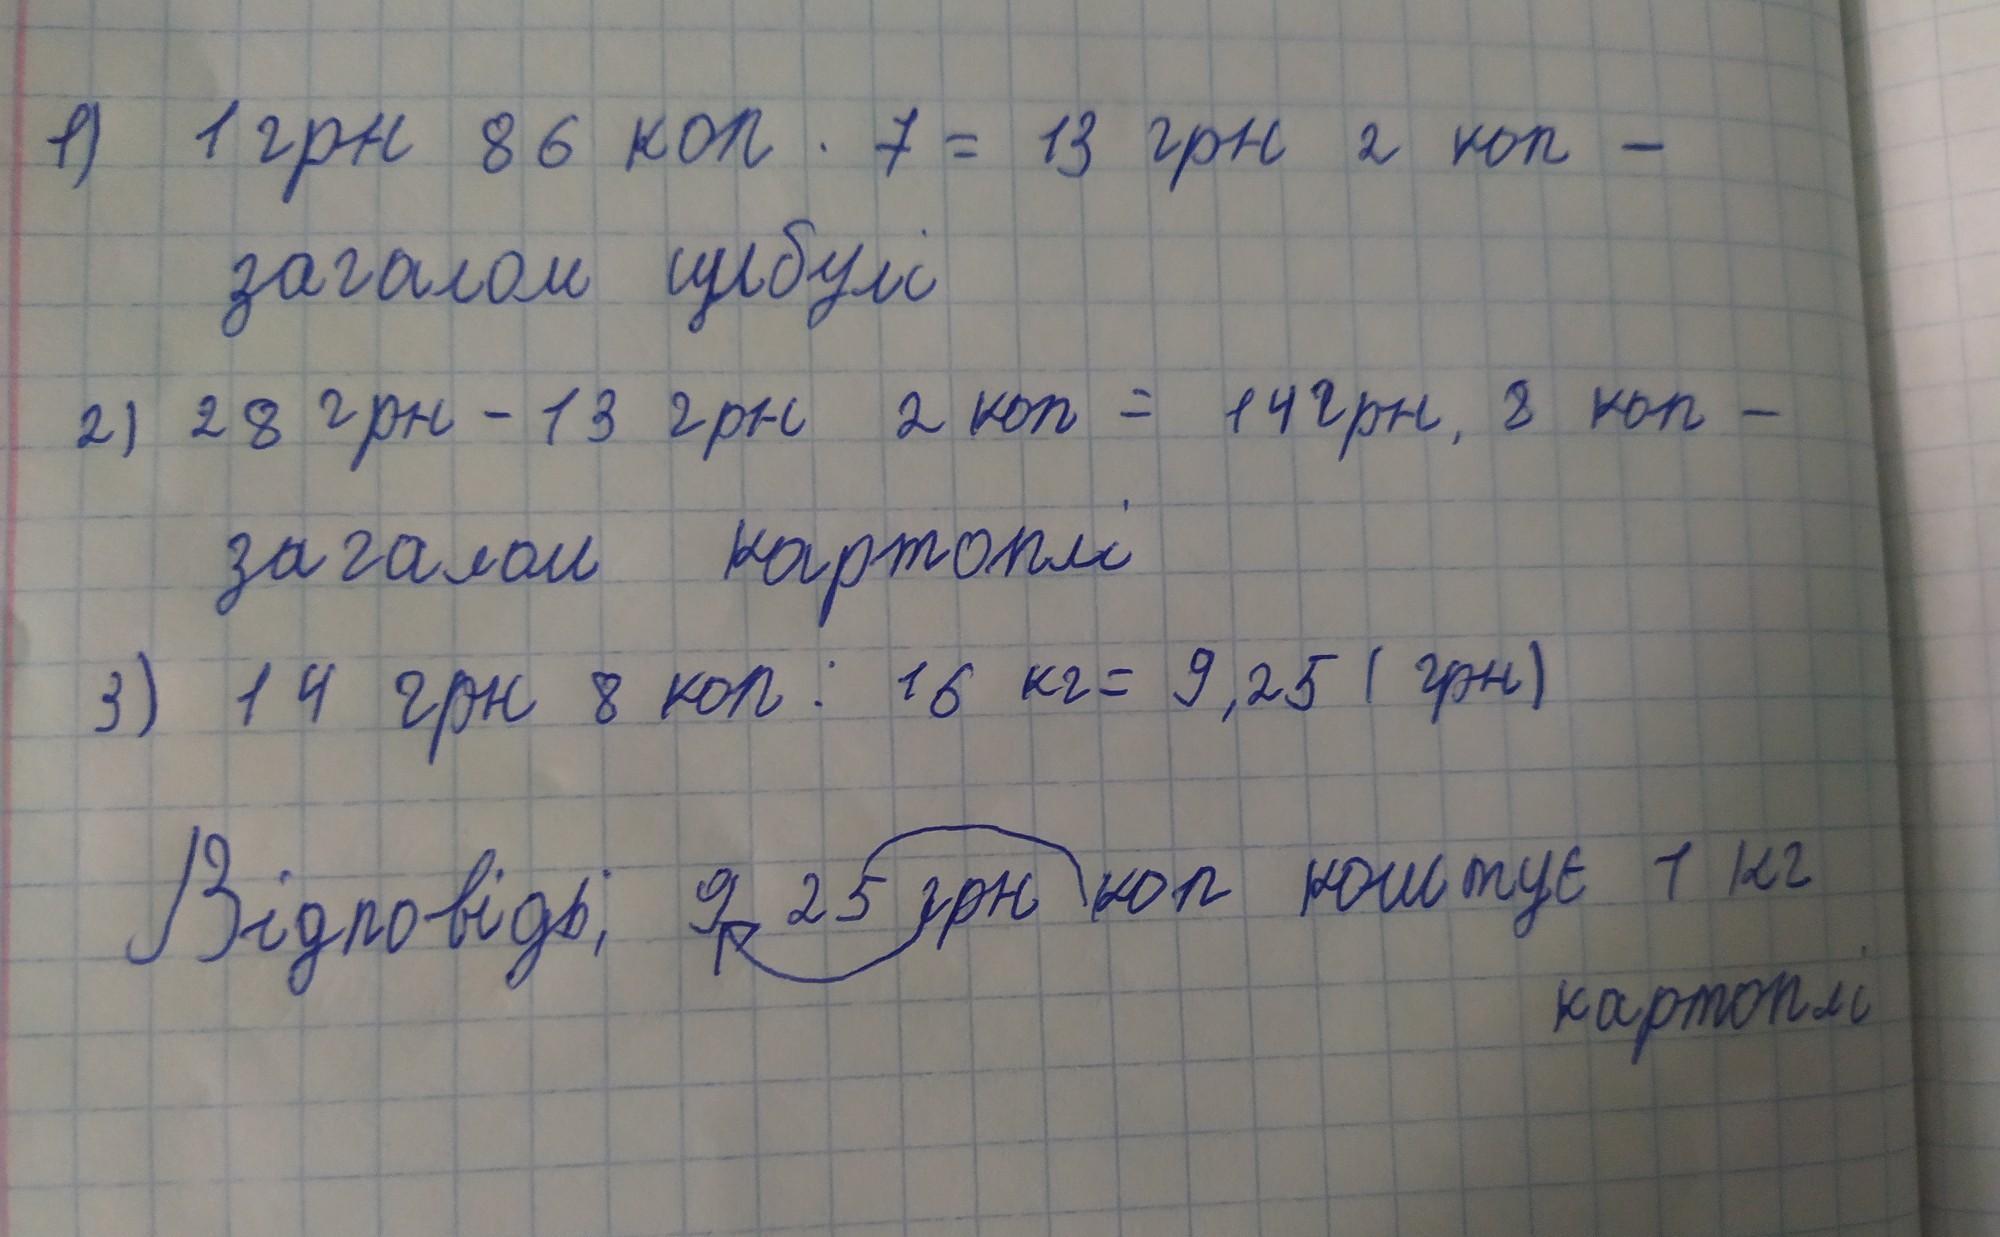 1) 1 грн 86 коп · 7 = 13 грн 2 коп -
загалом цибулі
2) 28 грн - 13 грн 2 коп = 14 грн, 8 коп -
загалом картоплі
3) 14 грн 8 коп : 16 кг = 9,25 (грн)
Відповідь; 9 25 грн коп коштує 1 кг
картоплі